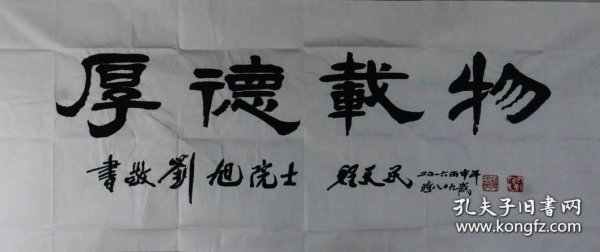 厚德載物
書敬劉旭院士 程天民 二〇一六丙申年
時八十九歲
孔夫子旧书网
www.kongfz.com